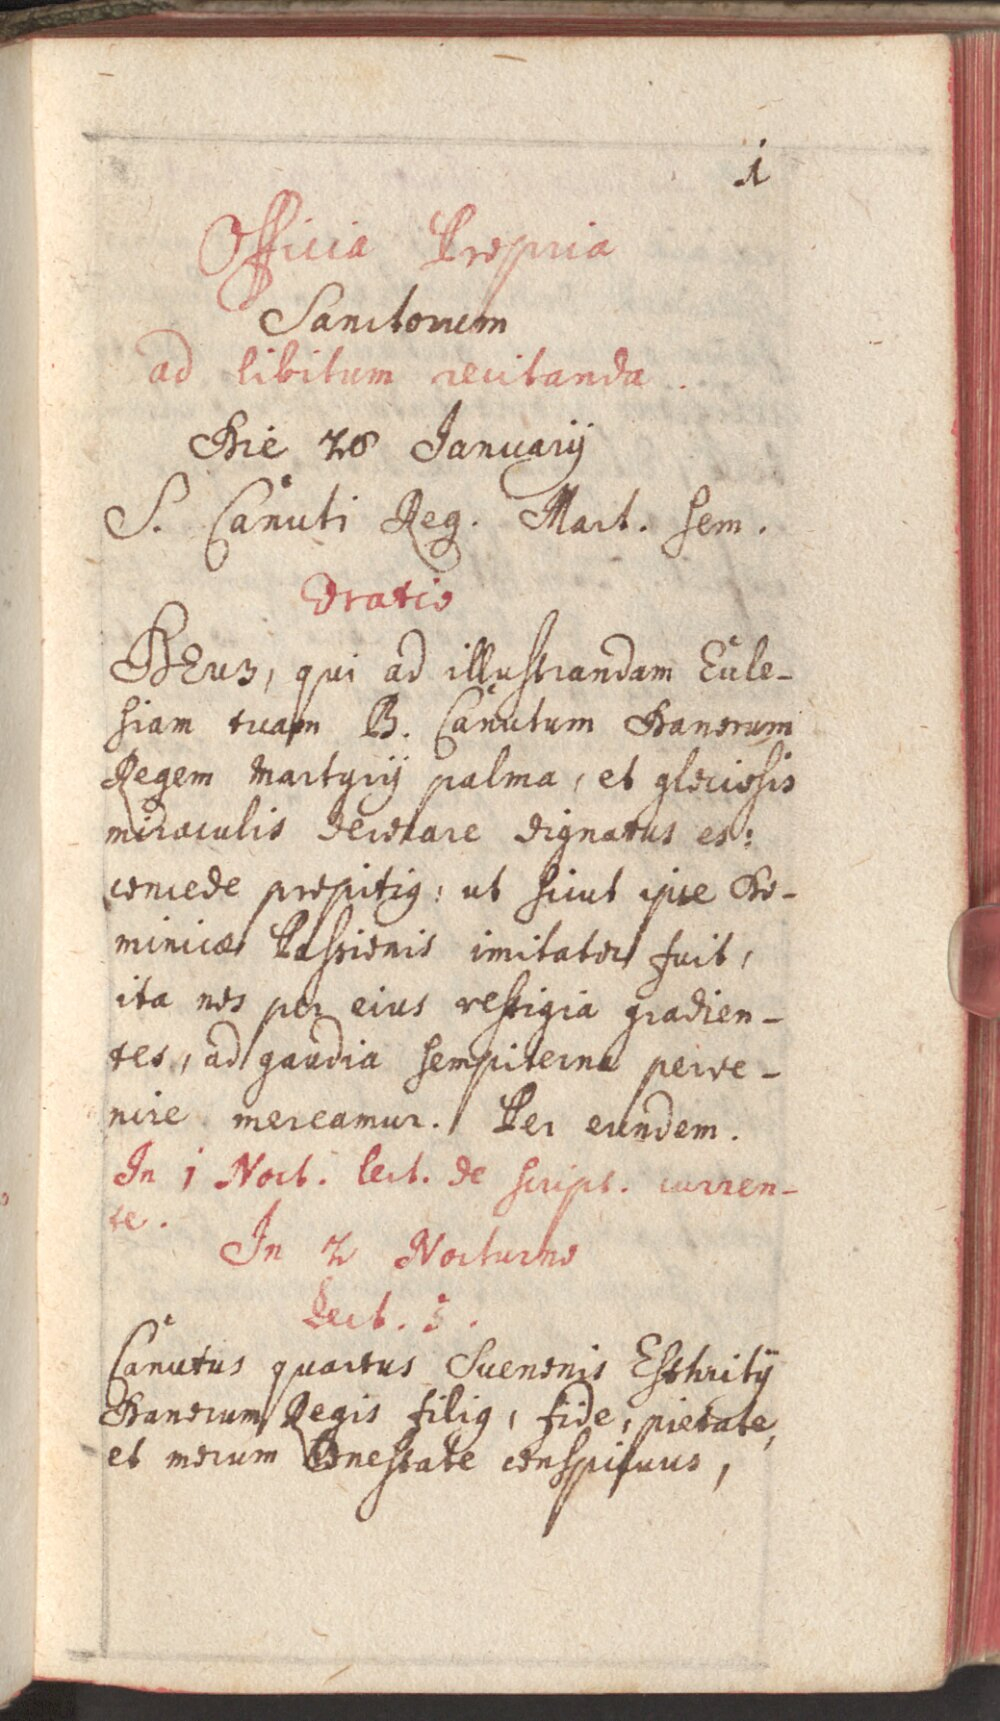 1
Officia Propria
Sanctorum
ad libitum recitanda.
Die 28 Januarij
S. Canuti Reg. Mart. sem.
Oratio
DEus, qui ad illustrandam Eccle-
siam tuam B. Canutum Danorum
Regem Martyrij palma, et gloriosis
miraculis decorare dignatus es:
concede propitig: ut sicut ipse Do-
minicæ Passionis imitator fuit,
ita nos per eius vestigia gradien-
tes, ad gaudia sempiterna perve-
nire mereamur. Per eundem.
In 1 Noct. lect. de script. curren-
te.
In 2 Nocturno
Lect. 5.
Canutus quartus Suenonis Esthritij
Danorum Regis filig, fide, pietate,
et morum honestate conspicuus,